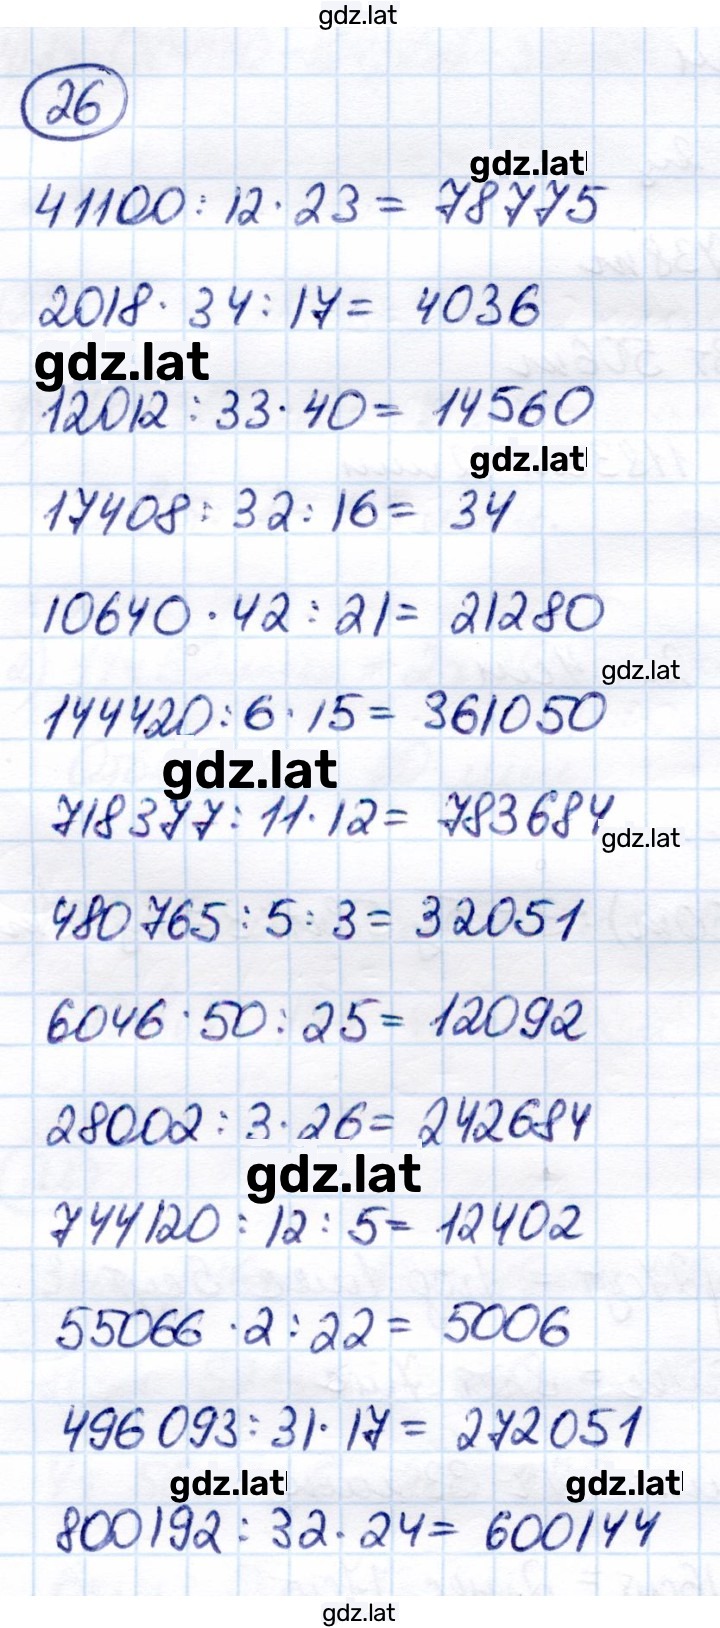 gdz.lat
26
gdz.lat
41100 : 12 · 23 = 78775
2018 · 34 : 17 = 4036
gdz.lat
12012 : 33 · 40 = 14560
gdz.lat
17408 : 32 : 16 = 34
10640 · 42 : 21 = 21280
gdz.lat
144420 : 6 · 15 = 361050
gdz.lat
718377 : 11 · 12 = 783684
gdz.lat
480765 : 5 : 3 = 32051
6046 · 50 : 25 = 12092
28002 : 3 · 26 = 242684
gdz.lat
744120 : 12 : 5 = 12402
55066 · 2 : 22 = 5006
496093 : 31 · 17 = 272051
gdz.lat gdz.lat
800192 : 32 · 24 = 600144
gdz.lat